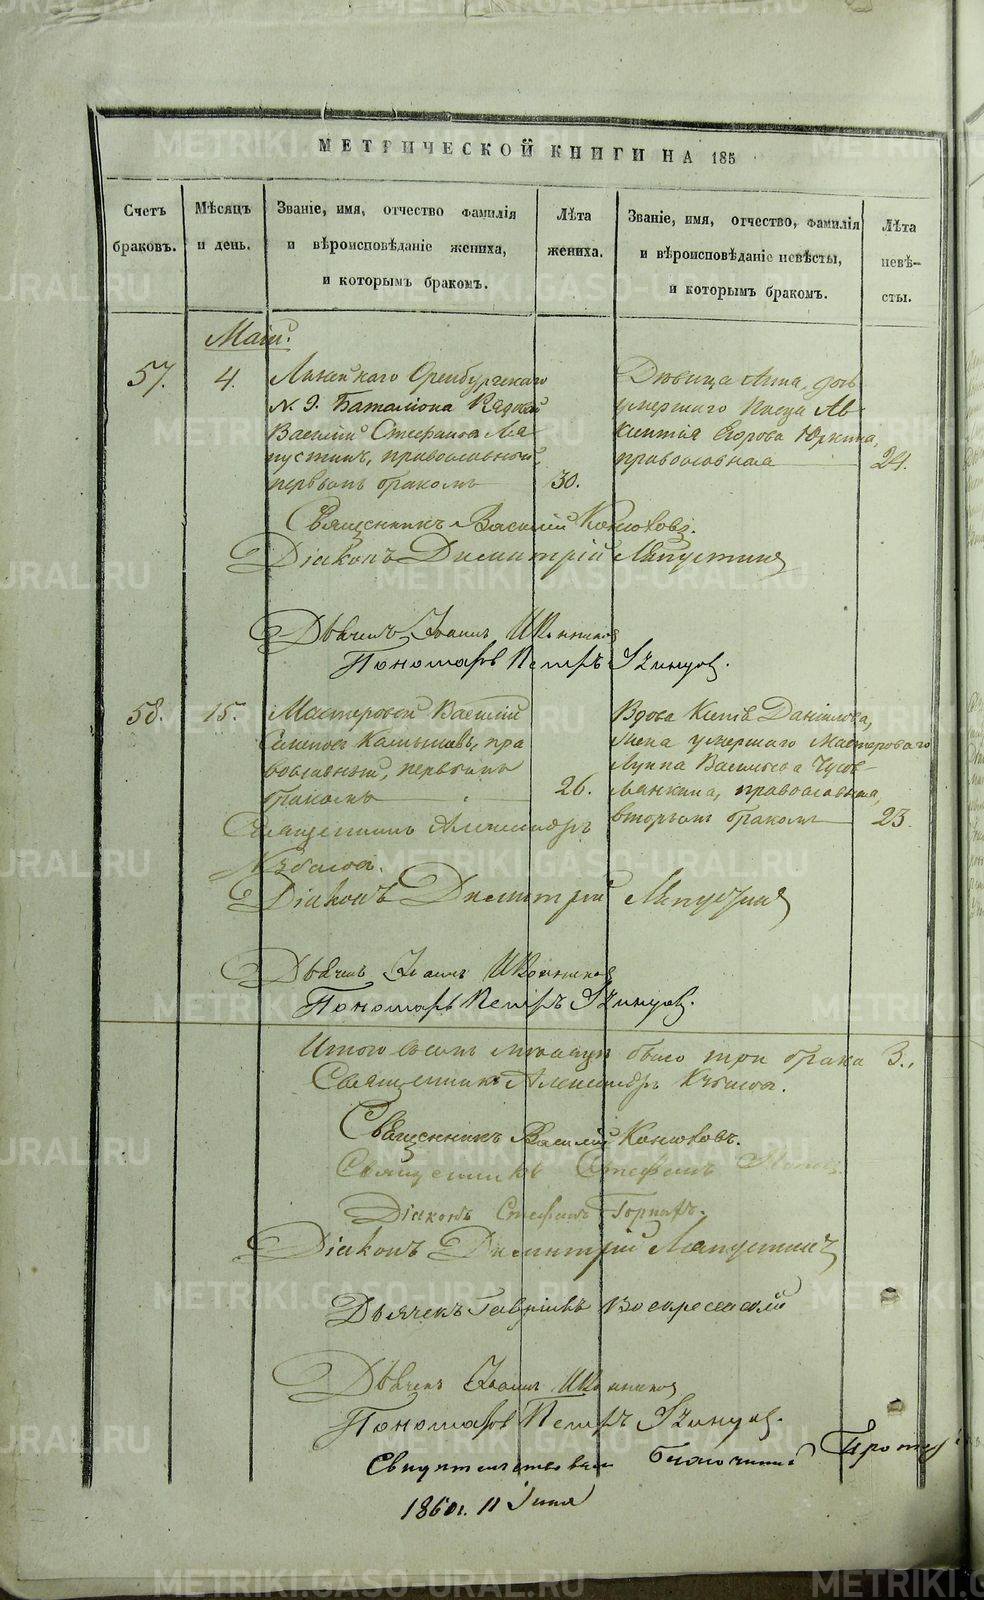 МЕТРИЧЕСКОЙ КНИГИ НА 185
Счетъ браковъ.
Мѣсяцъ и день.
Званіе, имя, отчество фамилія
и вѣроисповѣданіе жениха,
и которымъ бракомъ.
Лѣта жениха.
Званіе, имя, отчество, фамилія
и вѣроисповѣданіе невѣсты,
и которымъ бракомъ.
Лѣта невѣ-
сты.
Маій.
57.
4.
Линейнаго Оренбургскаго
N. 9. Баталіона Рядовой
Василій Стефановъ Ла
пустинъ, православный,
первымъ бракомъ
30.
Дѣвица Анна, дочь
умершаго Ав-
Егорова Юркина,
православная
24.
Священникъ Василій Конюховъ.
Діаконъ Димитрій Лапустинъ
Дьячекъ Іоаннъ Иконниковъ
Пономарь Петръ
58.
15.
Мастеровой Василій
Камышевъ, пра
вославный, первымъ
бракомъ
26.
Вдова Даніилова,
жена умершаго мастероваго
Луппа Васильева Чусов-
лянкина, православная,
вторымъ бракомъ
23.
Священникъ Александръ
Діаконъ Димитрій Лапустинъ
Дьячекъ Іоаннъ Иконниковъ
Пономарь Петръ
Итого въ семъ мѣсяцѣ было три брака 3.
Священникъ Александръ
Священникъ Василій Конюховъ.
Священникъ Стефанъ
Діаконъ Стефанъ
Діаконъ Димитрій Лапустинъ
Дьячекъ Гавріилъ Воскресенскій
Дьячекъ Іоаннъ Иконниковъ
Пономарь Петръ
Свидѣтельствовалъ Благочинный
1860г. 11 Іюня
METRIKI.GASO-URAL.RU